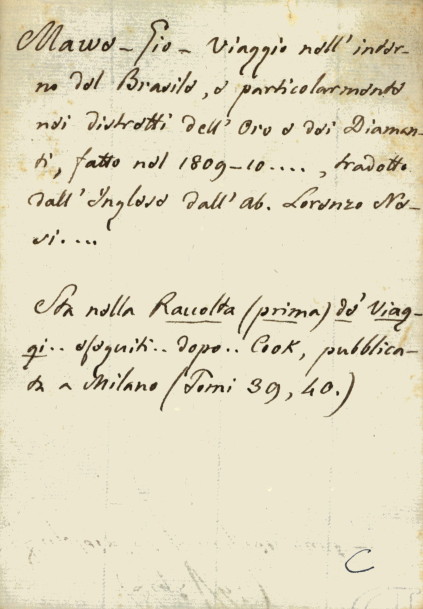 Mawe - Gio - Viaggio nell' inter-
no del Brasile, e particolarmente
nei distretti dell' Oro e dei Diaman-
ti, fatto nel 1809-10...., tradotto
dall' Inglese dall' Ab. Lorenzo Ne-
si....
Sta nella Raccolta (prima) de' Viag-
gi.. eseguiti.. dopo.. Cook, pubblica-
ta a Milano (Tomi 39, 40.)
C